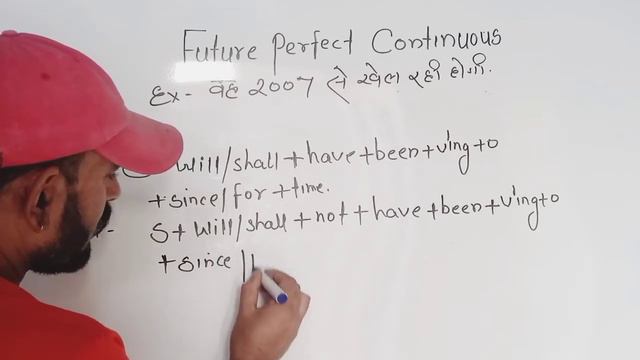 Future Perfect Continuous
Ex- वह 2007 से खेल रही होगी.
Will/shall + have + been + v'ing + o
+ since/for + time.
S + Will/shall + not + have + been + v'ing + o
+ since /